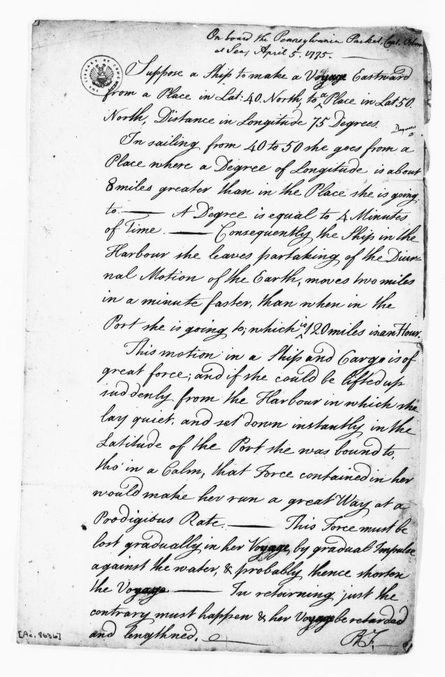 On board the Pennsylvania Packet, Capt. Osborne
at Sea, April 5. 1775.
Suppose a Ship to make a Voyage Eastward
from a Place in Lat. 40 North, to a Place in Lat 50
North, Distance in Longitude 75 Degrees.
In sailing from 40 to 50 she goes from a
Place where a Degree of Longitude is about
8 miles greater than in the Place she is going
to. — A Degree is equal to 4 Minutes
of Time. — Consequently the Ship in the
Harbour she leaves partaking of the Diur
nal Motion of the Earth, moves two miles
in a minute faster, than when in the
Port she is going to; which is 120 miles in an Hour.
This motion in a Ship and Cargo is of
great force; and if she could be lifted up
suddenly from the Harbour in which she
lay quiet, and set down instantly in the
Latitude of the Port she was bound to,
tho' in a Calm, that Force contained in her
would make her run a great Way at a
Prodigious Rate. — This Force must be
lost gradually in her Voyage, by gradual Impulse
against the water, & probably thence shorten
the Voyage. — In returning just the
contrary must happen & her Voyage be retarded
and lengthned.
B.F.
[Ac. 8636]